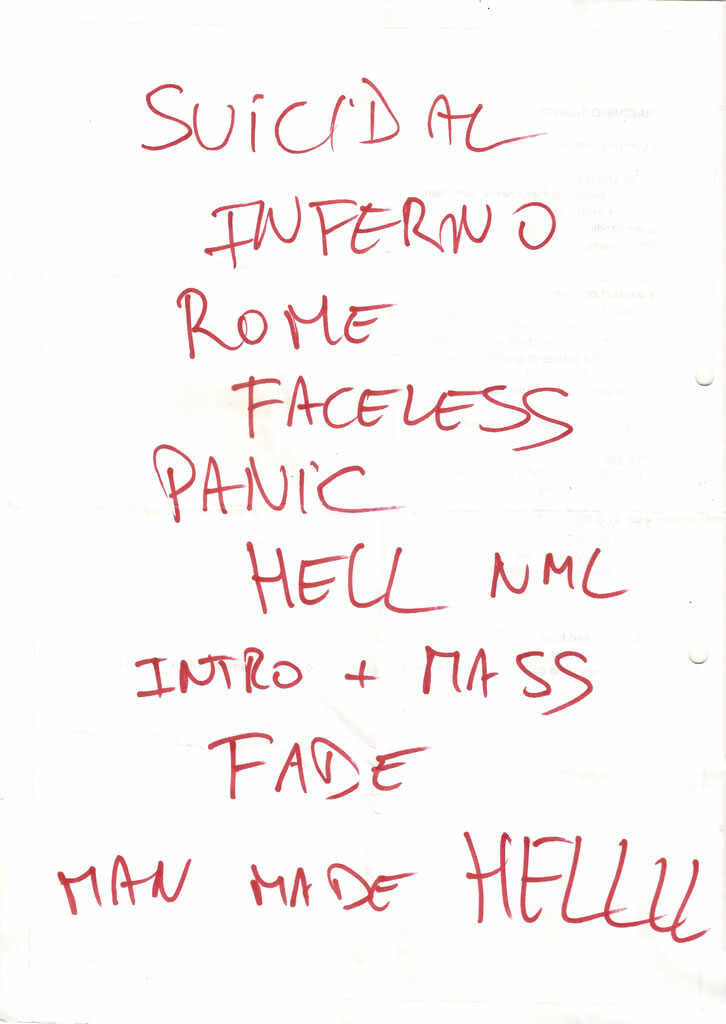 SUiCiDAL
INFERNO
ROME
FACELESS
PANiC
HELL NML
INTRO + MASS
FADE
MAN MADE HELLLL